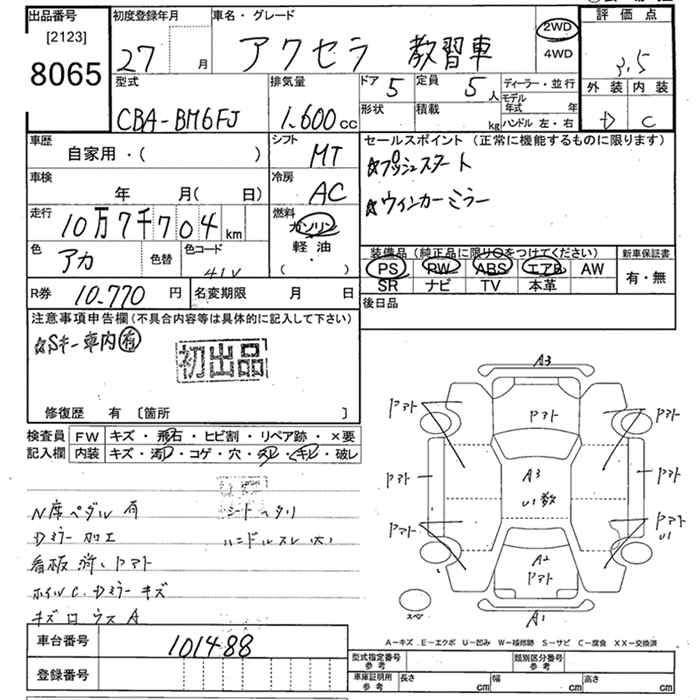 出品番号 初度登録年月 車名・グレード 2WD 評価点
[2123]
8065 27 月 アクセラ 教習車 4WD 3.5
型式 排気量 ドア 5 定員 5人 ディーラー・並行 外装 内装
CBA-BM6FJ 1.600cc 形状 積載 kg モデル年式 年 ハンドル 左・右 D C
車歴 シフト セールスポイント(正常に機能するものに限ります)
自家用・( ) MT ☆プッシュスタート
車検 冷房
年 月(日) AC ☆ウィンカーミラー
走行 燃料
10万7千704km ガソリン
色 色替 色コード 軽油 装備品(純正品に限り○をつけてください) 新車保証書
アカ 41V ( ) PS PW ABS エアB AW 有・無
R券 10.770円 名変期限 月 日 SR ナビ TV 本革
注意事項申告欄(不具合内容等は具体的に記入して下さい) 後日品
☆Sキー車内有
初出品
修復歴 有 [箇所 ]
検査員 FW キズ・飛石・ヒビ割・リペア跡・×要
記入欄 内装 キズ・汚レ・コゲ・穴・スレ・キレ・破レ
A3
ヤマト ヤマト ヤマト
A3
ヤマト ヤマト
U1数
ヤマト ヤマト
U1
A2
ヤマト
A1
スペア
N席ペダル有 シートヘタリ
Dミラー加工 ハンドルスレ大
看板消しヤマト
ホイルC.Dミラーキズ
A-キズ E-エクボ U-凹み W-補修跡 S-サビ C-腐食 XX-交換済
車台番号 101488
登録番号 型式指定番号 参考 類別区分番号 参考
車庫証明用 参考 長さ cm 幅 cm 高さ cm